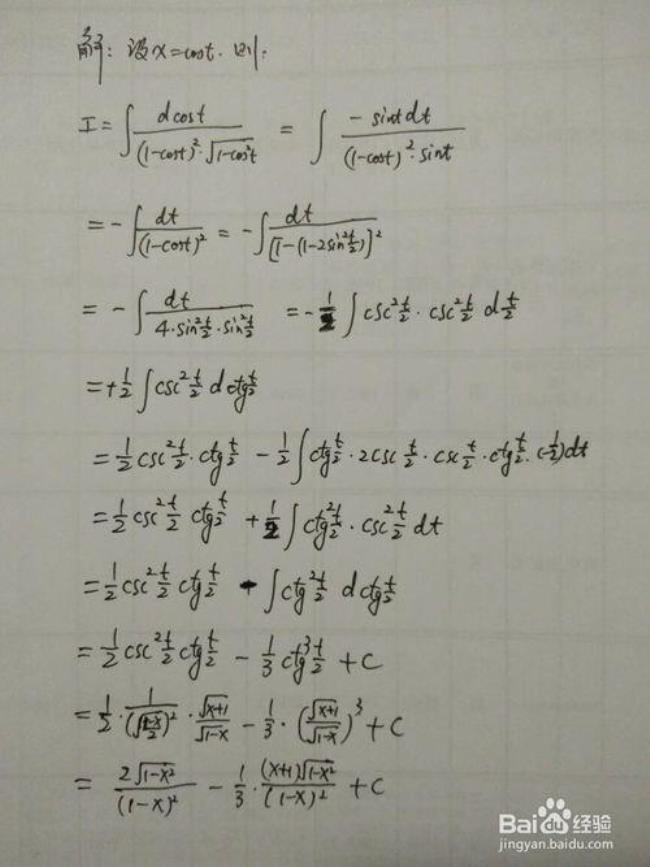 解：设x=cost. 则:
I = ∫ dcost / ((1-cost)²·√(1-cos²t)) = ∫ -sintdt / ((1-cost)²·sint)
= -∫ dt / (1-cost)² = -∫ dt / [1-(1-2sin²t/2)]²
= -∫ dt / (4·sin²t/2·sin²t/2) = -1/2 ∫ csc²t/2 · csc²t/2 d t/2
= +1/2 ∫ csc²t/2 d ctg t/2
= 1/2 csc²t/2 · ctg t/2 - 1/2 ∫ ctg t/2 · 2csc t/2 · csc t/2 · ctg t/2 · (-1/2)dt
= 1/2 csc²t/2 ctg t/2 + 1/2 ∫ ctg²t/2 · csc²t/2 dt
= 1/2 csc²t/2 ctg t/2 - ∫ ctg²t/2 d ctg t/2
= 1/2 csc²t/2 ctg t/2 - 1/3 ctg³t/2 + C
= 1/2 · 1/(√((1-x)/2))² · √(x+1)/√(1-x) - 1/3 · (√(x+1)/√(1-x))³ + C
= 2√(1-x²) / (1-x)² - 1/3 · (x+1)√(1-x²) / (1-x)² + C
Baidu 经验
jingyan.baidu.com